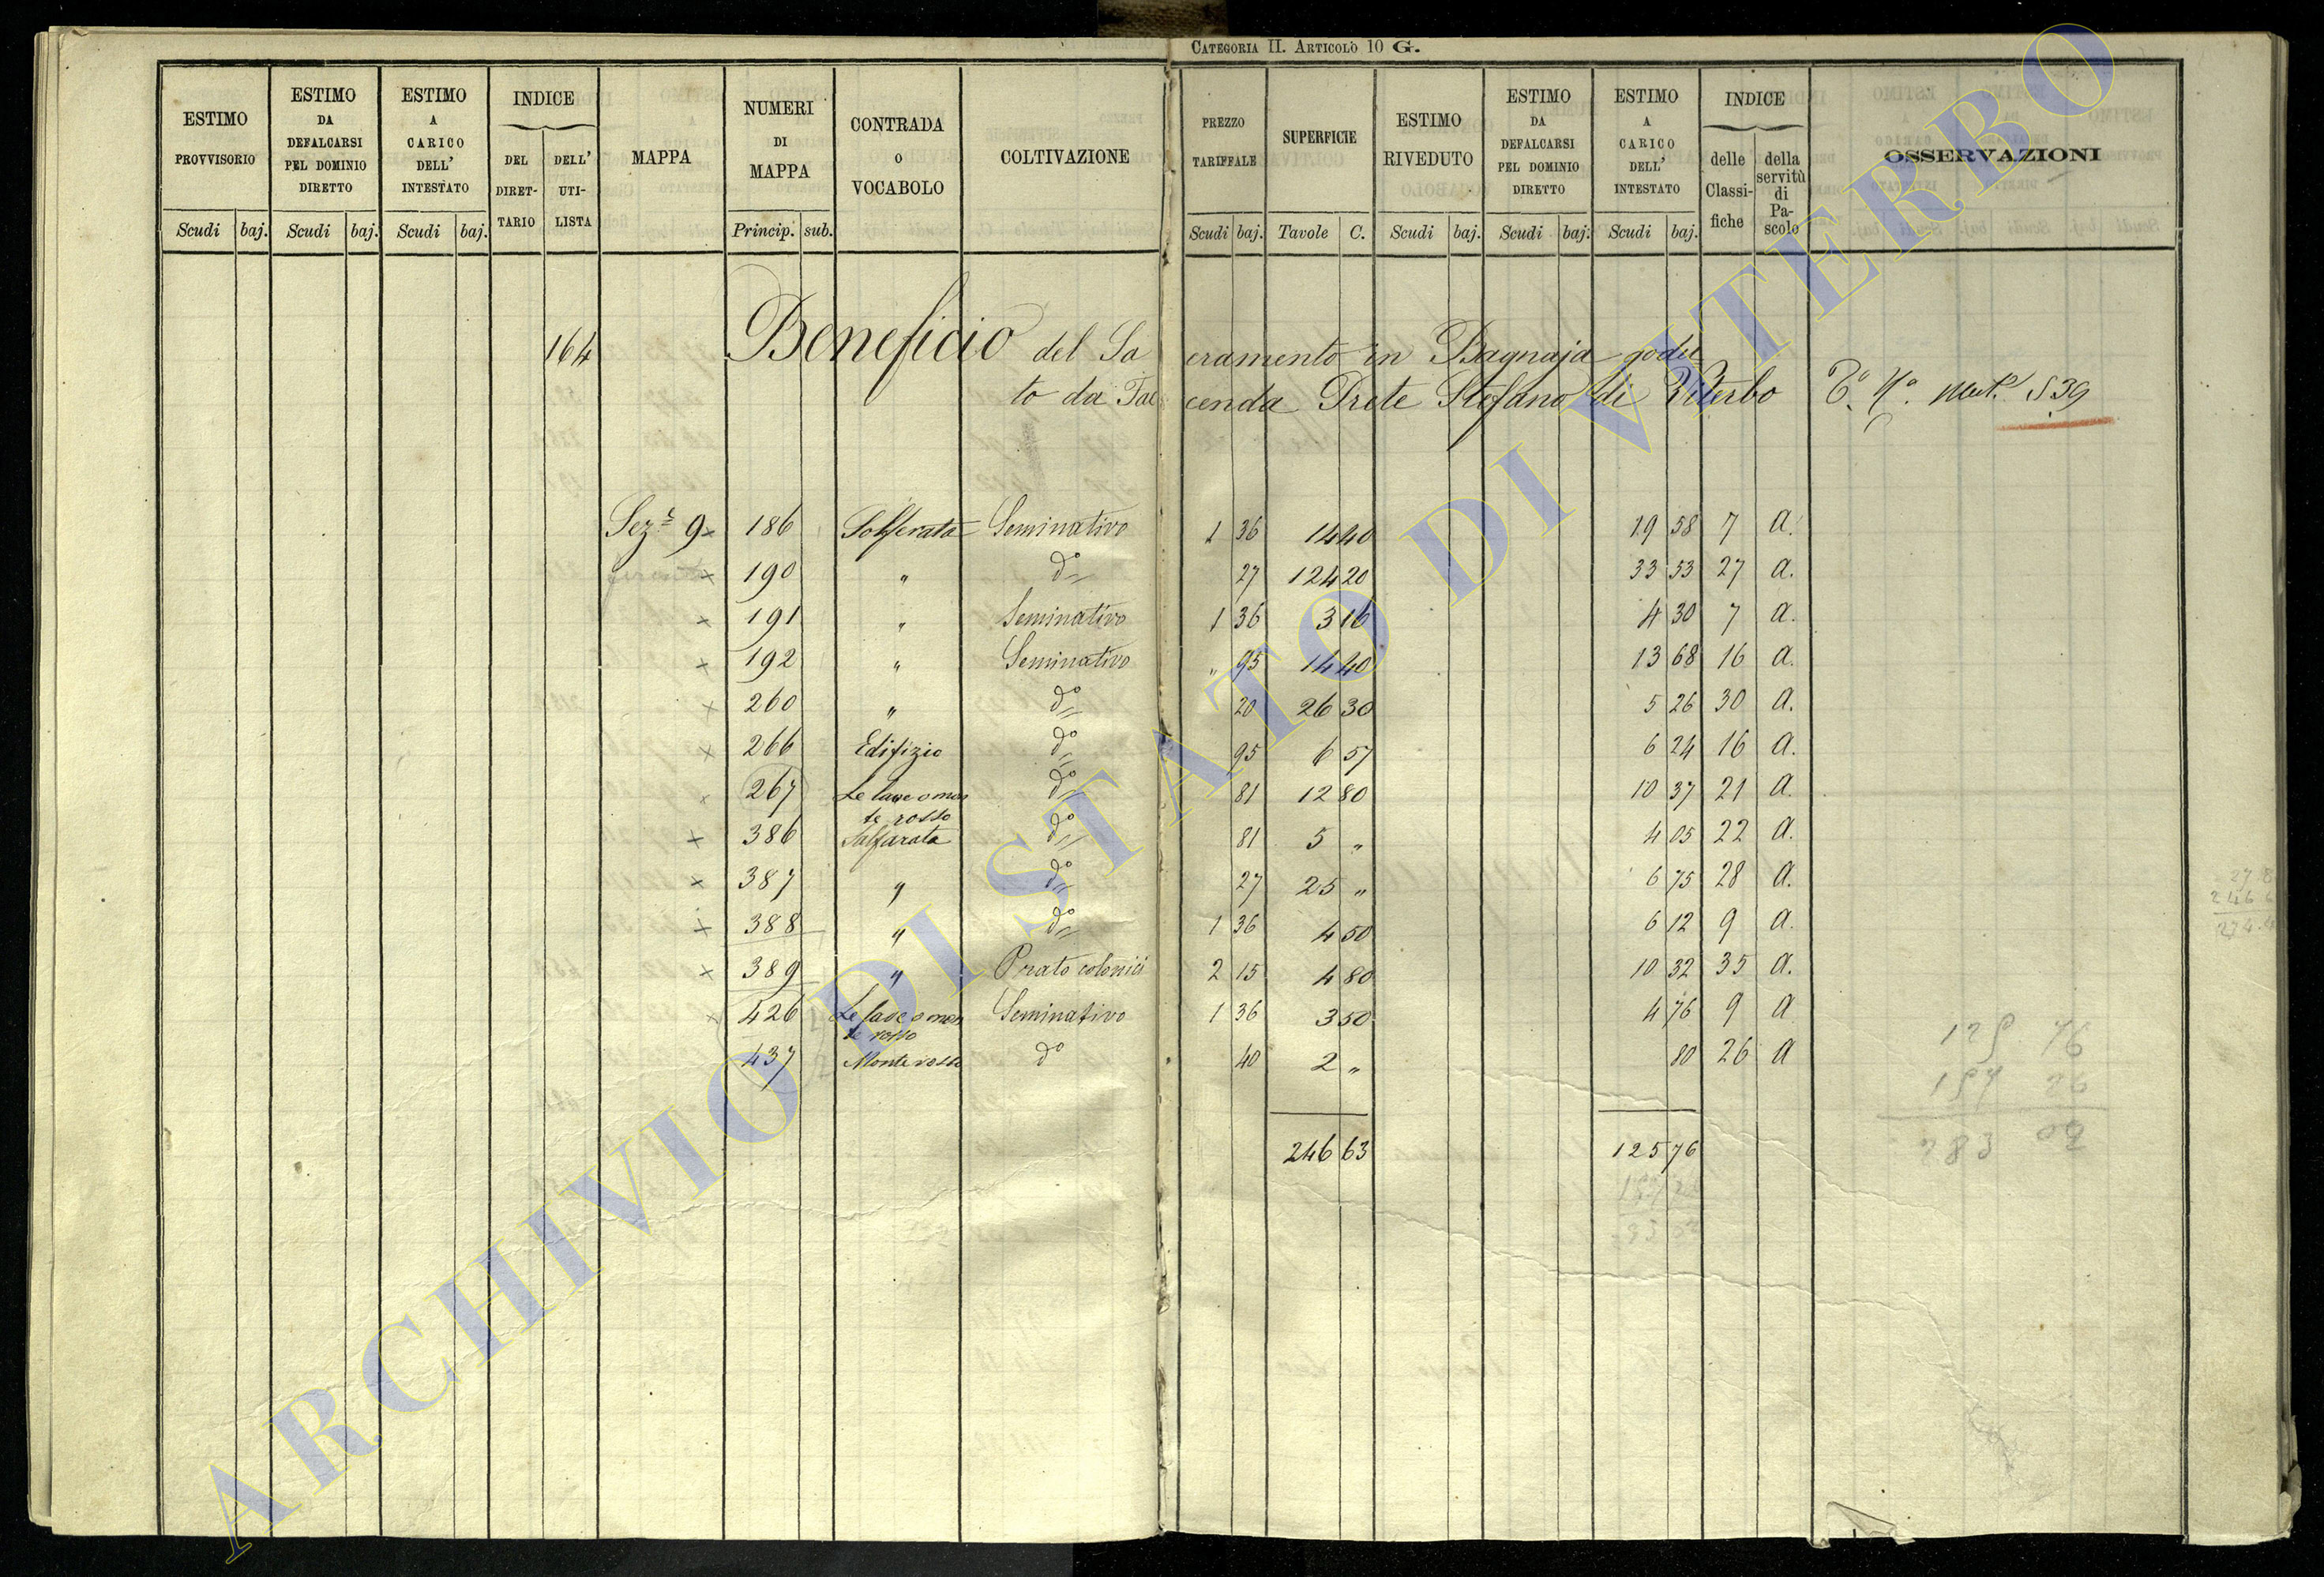 CATEGORIA II. ARTICOLO 10 G.
ESTIMO PROVVISORIO
ESTIMO DA DEFALCARSI PEL DOMINIO DIRETTO
ESTIMO A CARICO DELL' INTESTATO
INDICE
DEL DIRETTARIO
DELL' UTILISTA
MAPPA
NUMERI DI MAPPA
CONTRADA O VOCABOLO
COLTIVAZIONE
PREZZO TARIFFALE
SUPERFICIE
ESTIMO RIVEDUTO
ESTIMO DA DEFALCARSI PEL DOMINIO DIRETTO
ESTIMO A CARICO DELL' INTESTATO
INDICE
delle Classifiche
della servitù di Pascolo
OSSERVAZIONI
Scudi baj. Scudi baj. Scudi baj. Princip. sub. Scudi baj. Tavole C. Scudi baj. Scudi baj. Scudi baj.
164 Beneficio del Sacramento in Bagnaja godu
to da Facenda Prete Stefano di Viterbo 539
Sez.e 9 x 186 Solferata Seminativo 1 36 14 40 19 58 7 a.
x 190 " do 27 124 20 33 53 27 a.
x 191 " Seminativo 1 36 3 16 4 30 7 a.
x 192 " Seminativo " 95 14 40 13 68 16 a.
x 260 " do 20 26 30 5 26 30 a.
x 266 Edifizio do 95 6 57 6 24 16 a.
x 267 Le lave o mon do 81 12 80 10 37 21 a.
te rosso
x 386 Salfarata do 81 5 " 4 05 22 a.
x 387 " do 27 25 " 6 75 28 a.
x 388 " do 1 36 4 50 6 12 9 a.
x 389 " Prato colonici 2 15 4 80 10 32 35 a.
x 426 Le lave o mon Seminativo 1 36 3 50 4 76 9 a
te rosso
437 Monte rosso do 40 2 " 80 26 a
246 63 125 76
125 76
157 26
283 02
ARCHIVIO DI STATO DI VITERBO